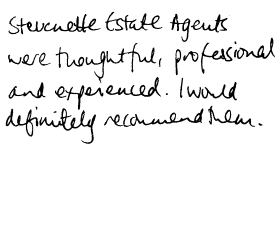 Stevenette Estate Agents
were thoughtful, professional
and experienced. I would
definitely recommend them.